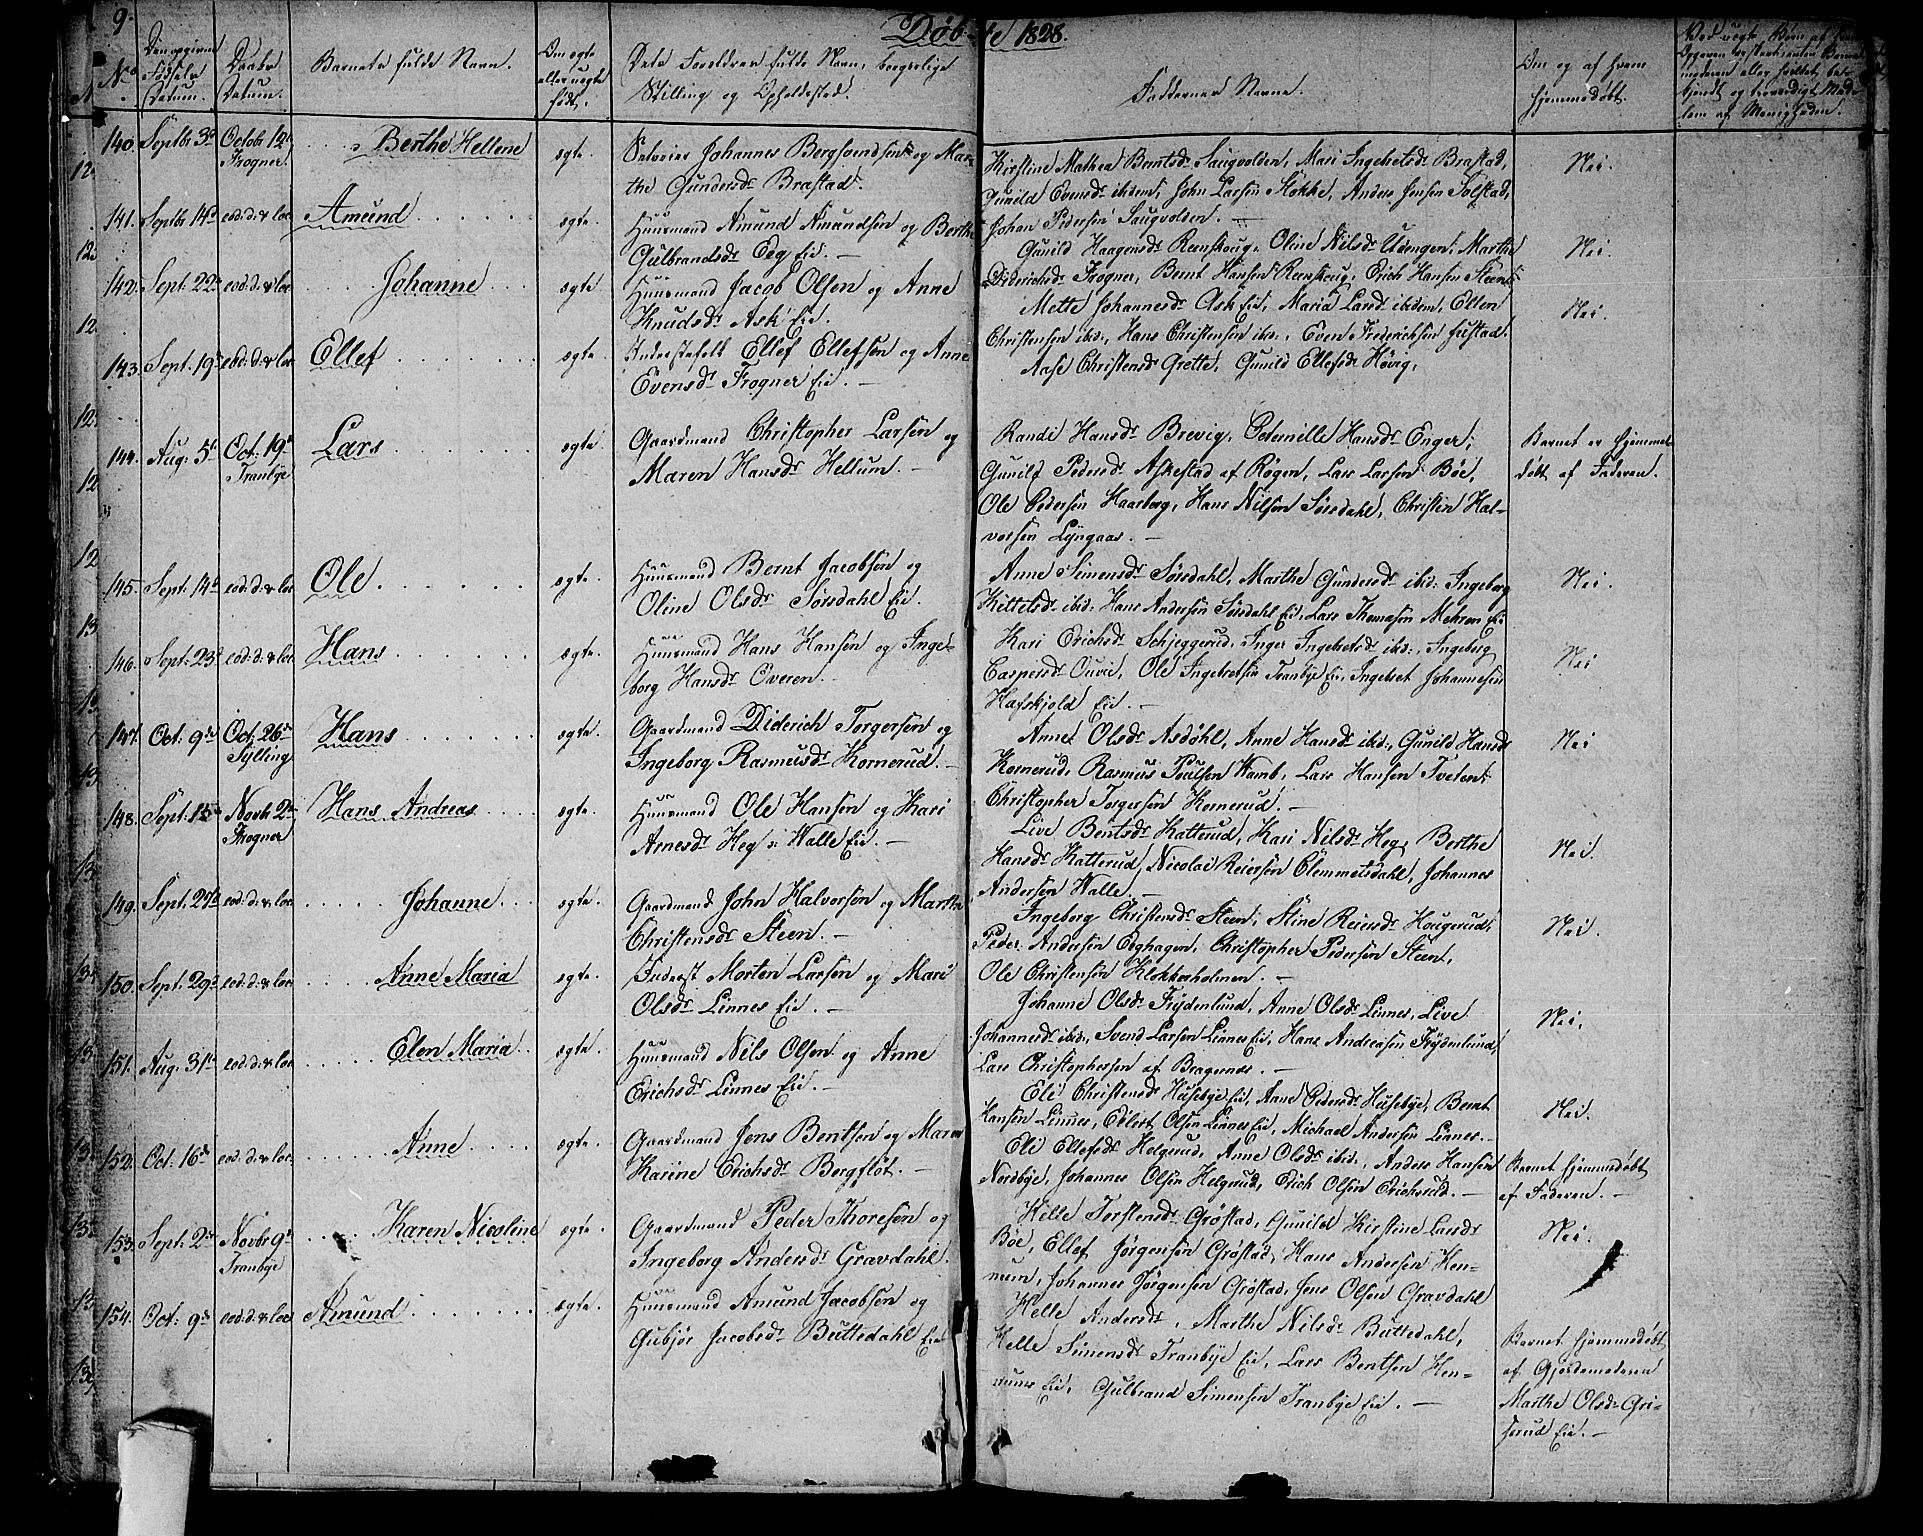 9.
Døbte 1828.
No.
Den opgivne Fødsels Datum.
Daabs Datum.
Barnets fulde Navn.
Om ægte eller uægte født.
Dets Forældres fulde Navn, borgerlige
Stilling og Opholdssted.
Faddernes Navne.
Om og af hvem
hjemmedøbt.
140. Septbr 3d Octobr 12te Frogner
Berthe Hellene
ægte.
Johannes Bergsvendsen og Mar-
the Gundersdr Brastad.
Kirstine Mathea Berntsdr Saugvolden, Mari Ingebretsdr Brastad,
Gunild Evensdr ibidem, John Larsen Stokke, Anders Jensen Solstad,
Johan Pedersen Saugvolden. —
Nei.
141. Septbr 14d eod: d: & loc
Amund
ægte.
Huusmand Amund Amundsen og Berthe
Gulbrandsdr Eeg Eie. —
Gunild Haagensdr Renskoug, Oline Nilsdr Udengen, Marthe
Diderichsdr Frogner, Bernt Hansen Renskoug, Erich Hansen Steens
Nei.
142. Sept: 22de eod: d: & loc
Johanne
ægte
Huusmand Jacob Olsen og Anne
Knudsdr Ask Eie.
Mette Johannesdr Ask Eie, Maria Larsdr ibidem, Ellen
Christensen ibid:, Hans Christensen ibid:, Even Frederichsen
Nei.
143. Sept. 19de eod: d: & loc
Ellef
ægte.
Inderstefolk Ellef Ellefsen og Anne
Evensdr Frogner Eie. —
Aase Christensdr Grette, Gunild Ellefsdr Høvig,
144. Aug: 5te Oct: 19de Tranbye
Lars
ægte
Gaardmand Christopher Larsen og
Maren Hansdr Hellum. —
Randi Hansdr Brevig, Peternille Hansdr Enger,
Gunild Pedersdr Askestad af Røgen, Lars Larsen Bøe,
Ole Pedersen Haarberg, Hans Nilsen Sørsdahl, Christen Hal-
vorsen Lyngaas. —
Barnet er hjemme-
døbt af Faderen.
145. Sept: 14de eod: d: & loc
Ole
ægte.
Huusmand Bernt Jacobsen og
Oline Olsdr Sørsdahl Eie.
Anne Simensdr Sørsdahl, Marthe Gundersdr ibid: Ingeborg
Kittelsdr ibid: Hans Andersen Sørsdahl Eie, Lars Thomasen Mehren Eie
Nei.
146. Sept: 23d eod: d: & loc
Hans
ægte.
Huusmand Hans Hansen og Inge-
borg Hansdr Overen.
Kari Erichsdr Schjeggerud, Inger Ingebretsdr ibid:, Ingeborg
Caspersdr Ouvie, Ole Ingebretsen Tranbye Eie, Ingebret Johannesen
Hafskjold Eie. —
Nei
147. Oct: 9de Oct: 26de Sylling
Hans
ægte.
Gaardmand Diderich Torgersen og
Ingeborg Rasmusdr Kornerud. —
Anne Olsdr Asdøhl, Anne Hansdr ibid:, Gunild Hansdr
Kornerud, Rasmus Poulsen Wamb, Lars Hansen Tveten.
Christopher Torgersen Kornerud. —
Nei
148. Sept: 15de Novbr 2den Frogner
Hans Andreas
ægte.
Huusmand Ole Hansen og Kari
Arnesdr Heg i Walle Eie. —
Live Bentsdr Katterud, Kari Nilsdr Heg, Berthe
Hansdr Katterud, Nicolai Reiersen Clemmetsdahl, Johannes
Andersen Walle. —
Nei.
149. Sept: 27de eod: d: & loc
Johanne
ægte.
Gaardmand John Halvorsen og Marthe
Christensdr Steen. —
Ingeborg Christensdr Steen, Stine Reiersdr Hougerud,
Peder Andersen Eeghagen, Christopher Pedersen Steen,
Ole Christensen Klokkerholmen. —
Nei.
150. Sept: 29de eod: d: & loc
Anne Maria
ægte.
Inderst Morten Larsen og Mari
Olsdr Linnes Eie. —
Johanne Olsdr Frydenlund, Anne Olsdr Linnes, Live
Johannesdr ibid:, Svend Larsen Linnes Eie, Hans Andreasen Frydenlund,
Lars Christophersen af Bragernes. —
Nei.
151. Aug: 31te eod: d: & loc
Elen Maria
ægte.
Huusmand Nils Olsen og Anne
Erichsdr Linnes Eie. —
Eli Christensdr Husebye Eie, Anne Pedersdr Husebye, Bernt
Hansen Linnes, Edlert Olsen Linnes Eie, Michael Andersen Linnes. —
Nei.
152. Oct: 16de eod: d: & loc
Anne
ægte.
Gaardmand Jens Bentsen og Maren
Karine Erichsdr Bergfløt. —
Eli Ellefsdr Helgerud, Anne Olsdr ibid:, Anders Hansen
Nordbye, Johannes Olsen Helgerud, Erich Olsen Erichsrud. —
Barnet hjemmedøbt
af Faderen. —
153. Sept: 2den Novbr 9de Tranbye
Karen Nicoline
ægte.
Gaardmand Peder Thoresen og
Ingeborg Andersdr Gravdahl.
Helle Torstensdr Grøstad, Gunild Kirstine Larsdr
Bøe, Ellef Jørgensen Grøstad, Hans Andersen Hen-
num, Johannes Jørgensen Grøstad, Jens Olsen Gravdahl
Nei.
154. Oct: 9de eod: d: & loc
Amund
ægte.
Huusmand Amund Jacobsen og
Gubjør Jacobsdr Buttedahl Eie
Helle Andersdr, Marthe Nilsdr Buttedahl,
Helle Simensdr Tranbye Eie, Lars Bentsen Hen-
nums Eie, Gulbrand Simensen Tranbye Eie. —
Barnet hjemmedøbt
af Gjordemoderen
Marthe Olsdr Gri-
serud Eie. —